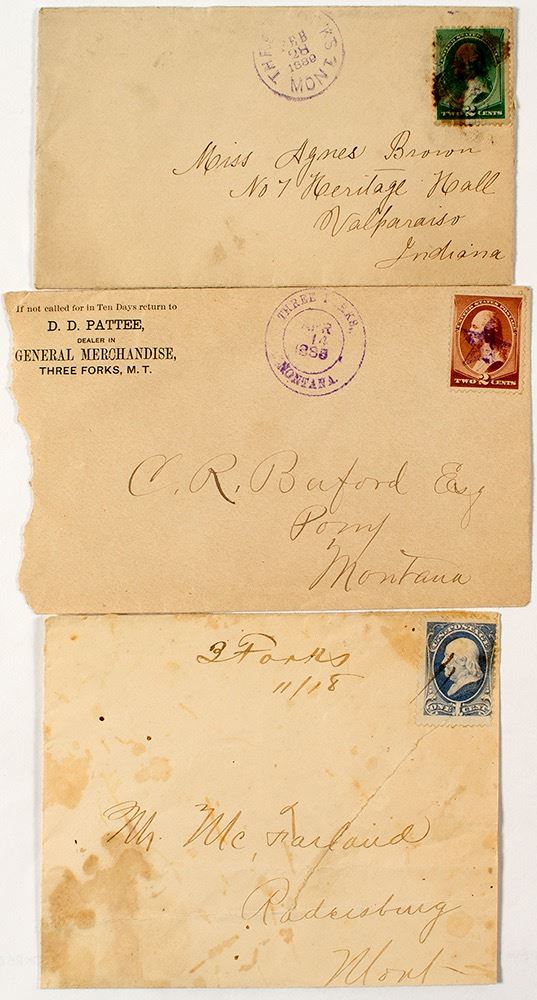 THREE FORKS
FEB
28
1889
MONT
TWO 2 CENTS
Miss Agnes Brown
No 7 Heritage Hall
Valparaiso
Indiana
If not called for in Ten Days return to
D. D. PATTEE,
DEALER IN
GENERAL MERCHANDISE,
THREE FORKS, M. T.
THREE FORKS,
APR
14
MONTANA
UNITED STATES POSTAGE
TWO 2 CENTS
C. R. Buford Esq
Pony
Montana
3 Forks
11/18
U.S. POSTAGE
ONE 1 CENT
Mr. McFarland
Radersburg
Mont